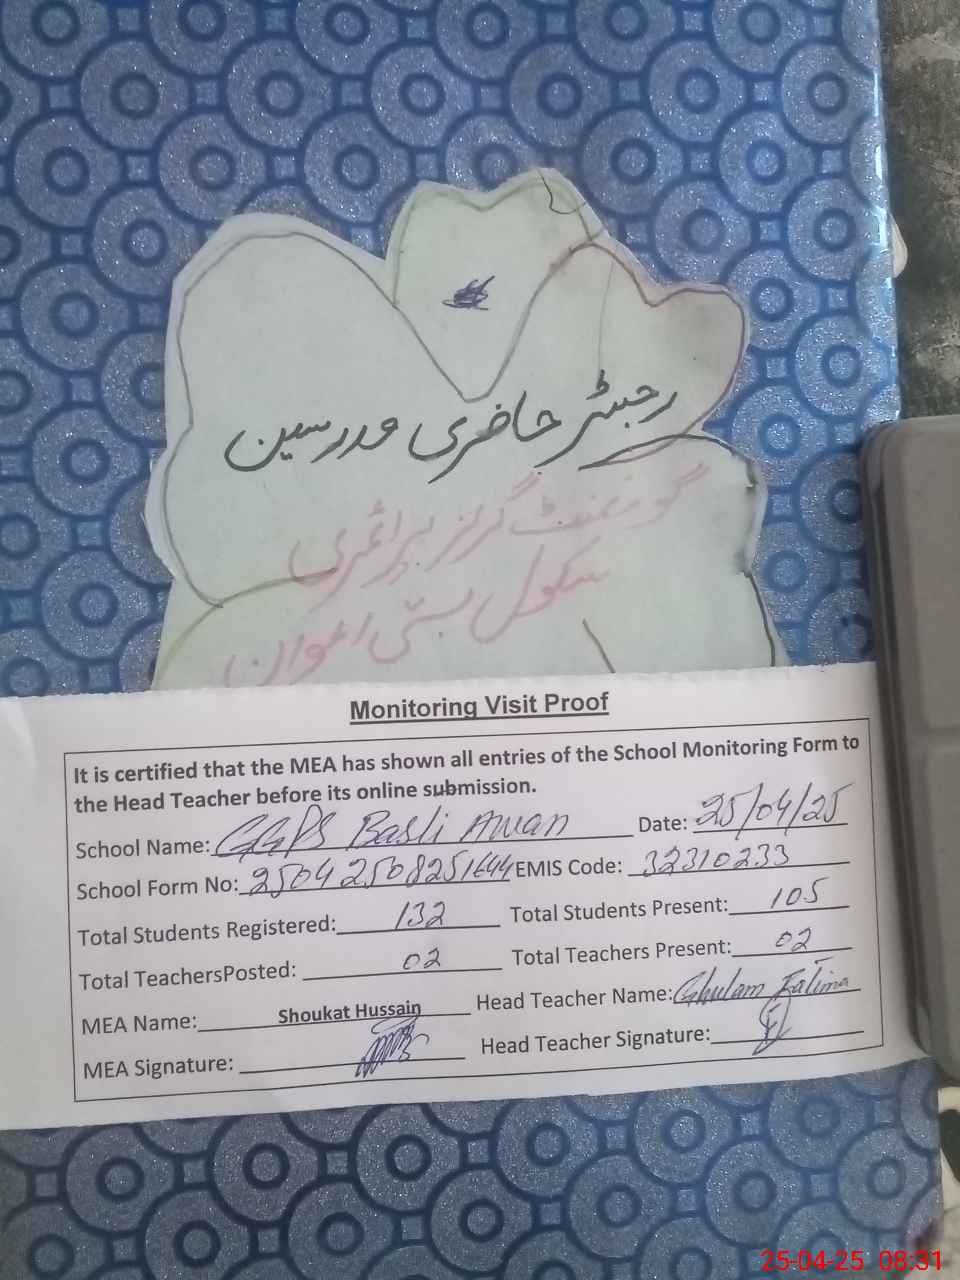 رجسٹر حاضری مدرسین
گورنمنٹ گرلز پرائمری
سکول بستی اعوان
Monitoring Visit Proof
It is certified that the MEA has shown all entries of the School Monitoring Form to
the Head Teacher before its online submission.
School Name: GGPS Basti Awan Date: 25/04/25
School Form No: 25042508251644 EMIS Code: 32310233
Total Students Registered: 132 Total Students Present: 105
Total TeachersPosted: 02 Total Teachers Present: 02
MEA Name: Shoukat Hussain Head Teacher Name: Ghulam Fatima
MEA Signature: Head Teacher Signature:
25-04-25 08:31